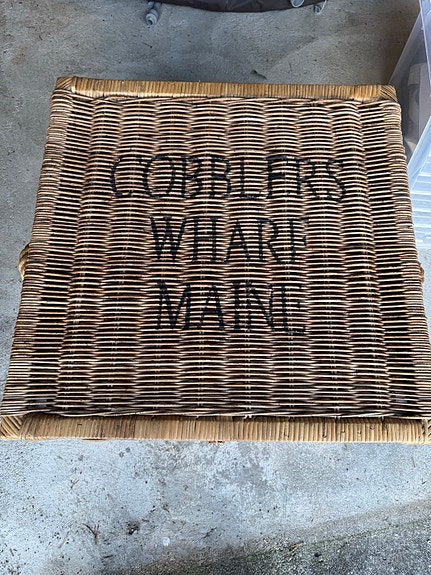 COBBLERS
WHARF
MAINE